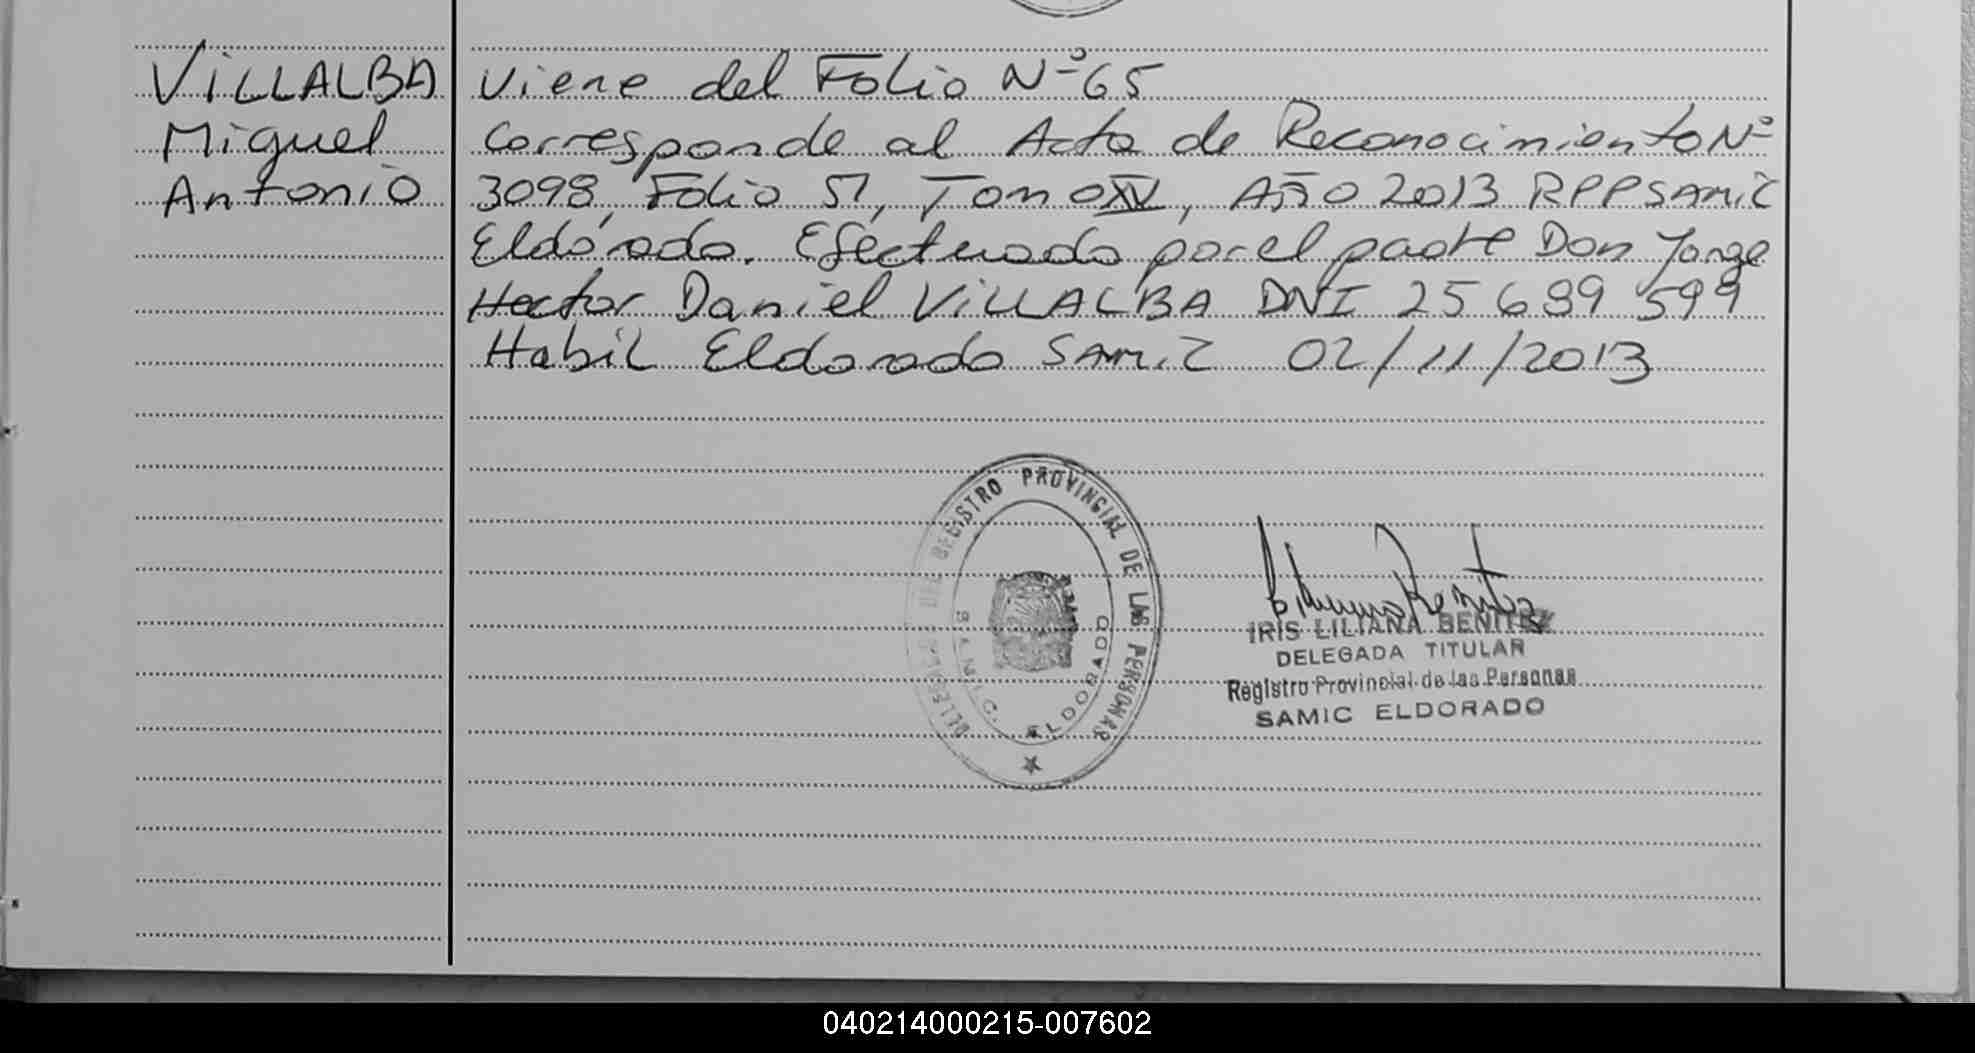 VILLALBA
Miguel
Antonio
Viene del Folio Nº 65
Corresponde al Acta de Reconocimiento Nº
3098, Folio 51, Tomo XV, AÑO 2013 RPPSAMIC
Eldorado. Efectuado por el padre Don Jorge
Hector Daniel VILLALBA DNI 25 689 599
Habil Eldorado SAMIC 02/11/2013
DELEGACION DEL REGISTRO PROVINCIAL DE LAS PERSONAS
S.A.M.I.C. ELDORADO
IRIS LILIANA BENITEZ
DELEGADA TITULAR
Registro Provincial de las Personas
SAMIC ELDORADO
040214000215-007602